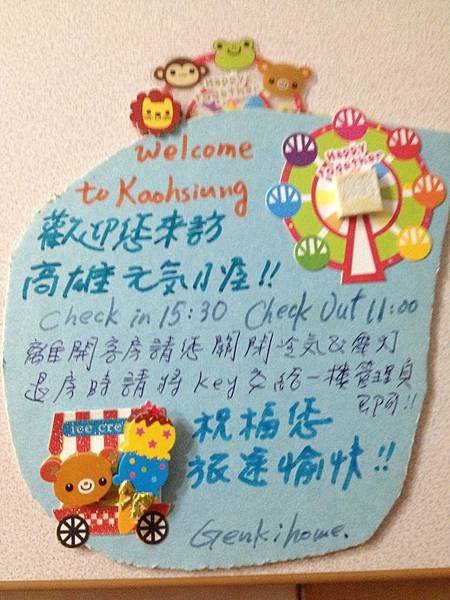 Happy Together
Happy Together
Welcome
to Kaohsiung
歡迎您來訪
高雄元気小屋!!
Check in 15:30 Check Out 11:00
離開客房請您關閉冷気及電灯
退房時請將key交給一樓管理員
即可!!
ice cre
祝福您
旅途愉快!!
Genkihome.